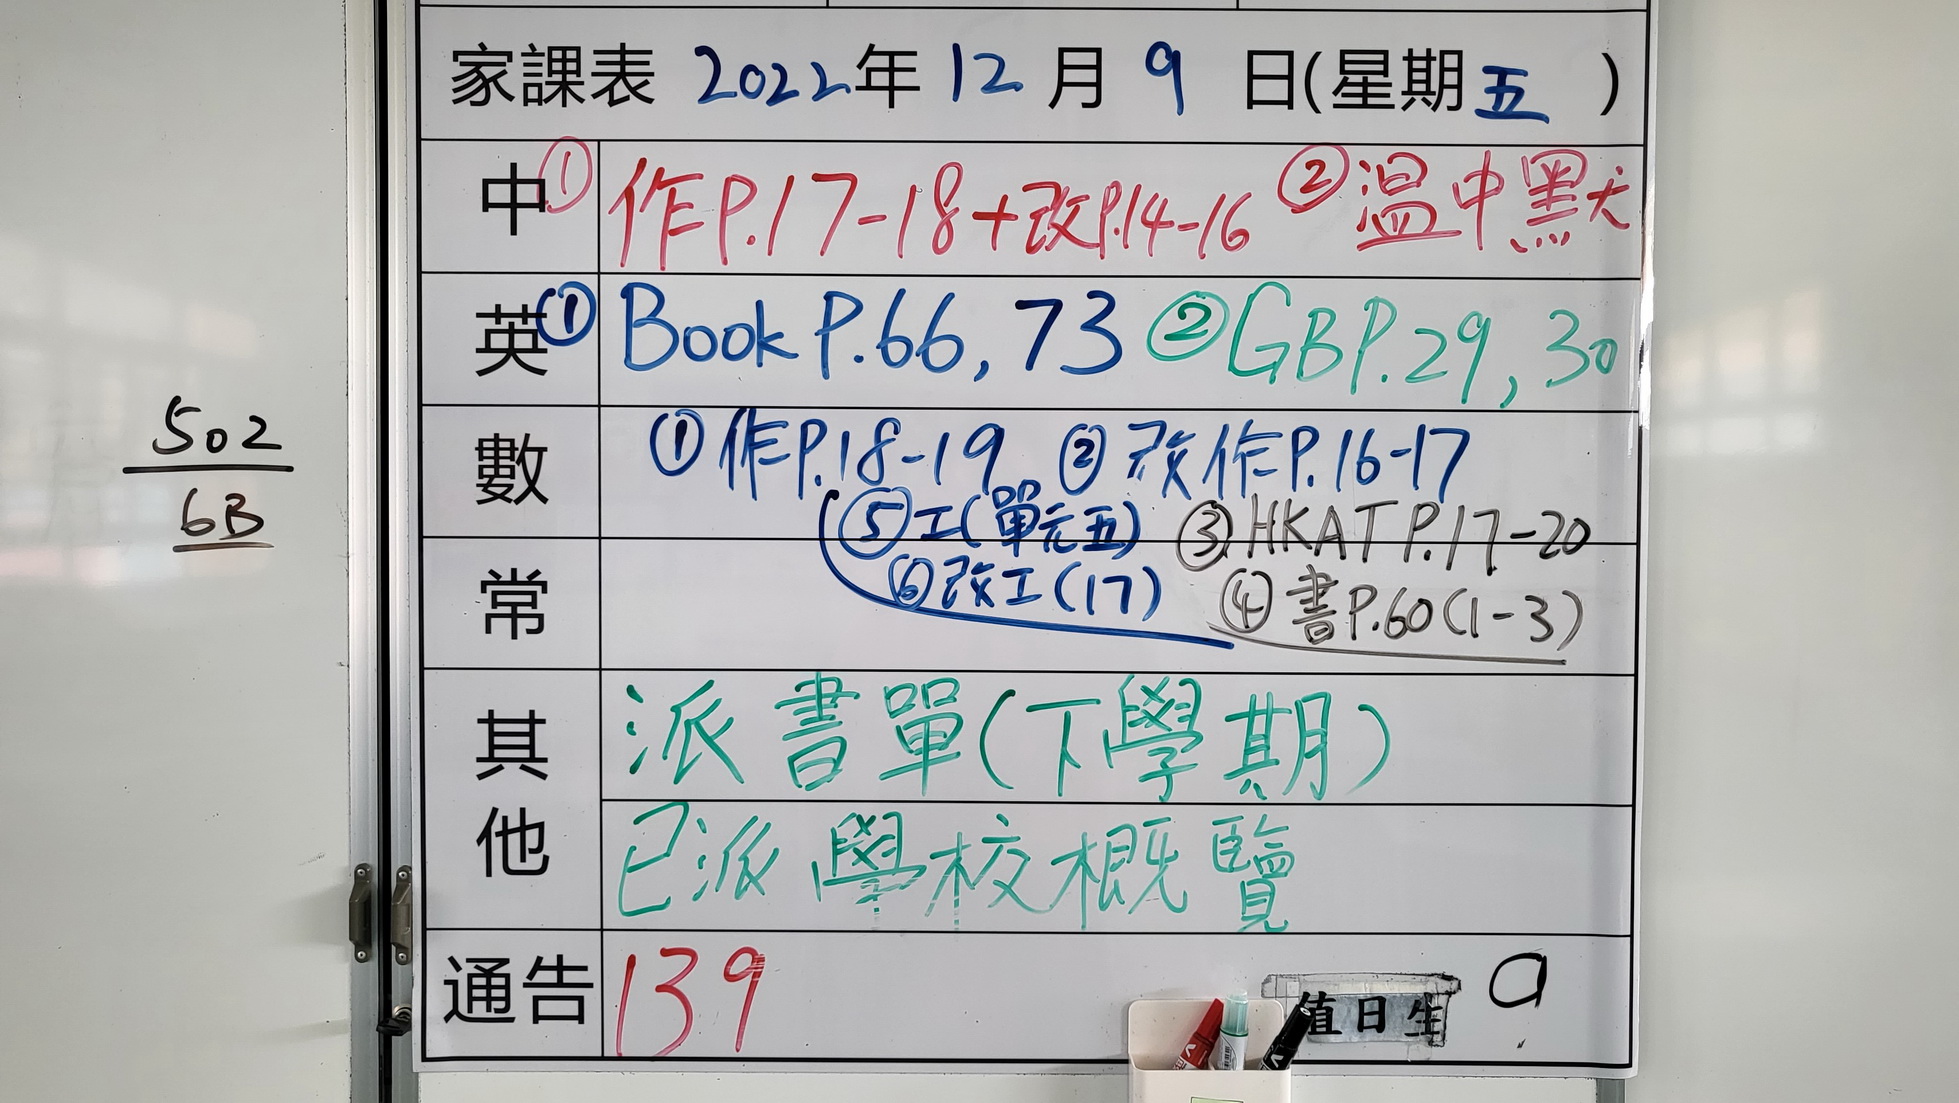 家課表 2022年 12 月 9 日(星期五)
中 ① 作P.17-18+改P.14-16 ② 温中默
英 ① Book P.66, 73 ② GB P.29, 30
數 ① 作P.18-19 ② 改作P.16-17
⑤ 工(單元五) ③ HKAT P.17-20
常 ⑥ 改工(17) ④ 書P.60(1-3)
其他 派書單(下學期)
已派學校概覽
通告 139
值日生 9
502
6B